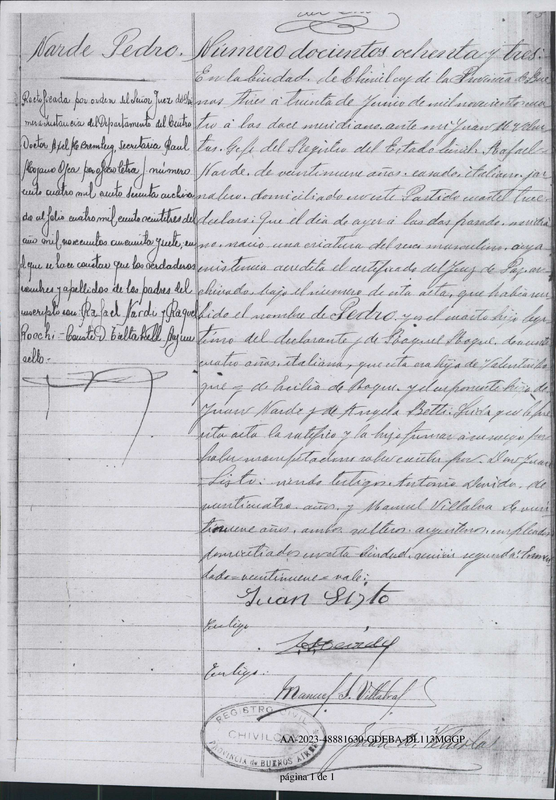 Narde Pedro.
Rectificada por orden del Señor Juez de Pri
mera instancia del Departamento del Centro
Doctor secretaria Raul
Mojano letra número
ciento cuatro mil ciento archiva
do al folio cuatro mil ciento veintitres del
año mil novecientos cincuenta y siete, en
el que se hace constar que los verdaderos
nombres y apellidos de los padres del
inscripto son: Rafael Nardi y Raquel
Rocchi -
sello -
Número docientos ochenta y tres:
En la Ciudad de Chivilcoy de la Provincia de Bue
nos Aires á treinta de Junio de mil novecientos cua
tro á las doce meridiano, ante mi Juan
Gefe del Registro del Estado Civil, Rafael
Narde, de veintinueve años, casado, italiano, jor
nalero, domiciliado en este Partido cuartel trece
declaró: Que el dia de ayer á las dos pasado meridia
no, nació una criatura del sexo masculino, cuya
existencia acredita el certificado del Juez de Paz, ar
chivado bajo el número de esta acta, que habia reci
bido el nombre de Pedro, y es el cuarto hijo legi
timo del declarante y de Raquel Roque, de
cuatro años, italiana, que esta era hija de Valentin Ro
que y de Emilia de Roque, y el esponente hijo de
Juan Narde y de Angela Leida que le fue
esta acta la ratificó y la hizo firmar á su ruego por
haber manifestado no saber escribir por Don Juan
Sisto: siendo testigos Antonio de
veinticuatro años, y Manuel Villalva de vein
tinueve años, ambos solteros, argentinos, empleados
domiciliados en esta Ciudad, seccion segunda: Enmen
dado = veintinueve = vale:
Juan Sisto
Testigo
Testigo:
Manuel S. Villalva
REGISTRO CIVIL
CHIVILCOY
PROVINCIA de BUENOS AIRES
AA-2023-48881630-GDEBA-DL113MGGP
página 1 de 1